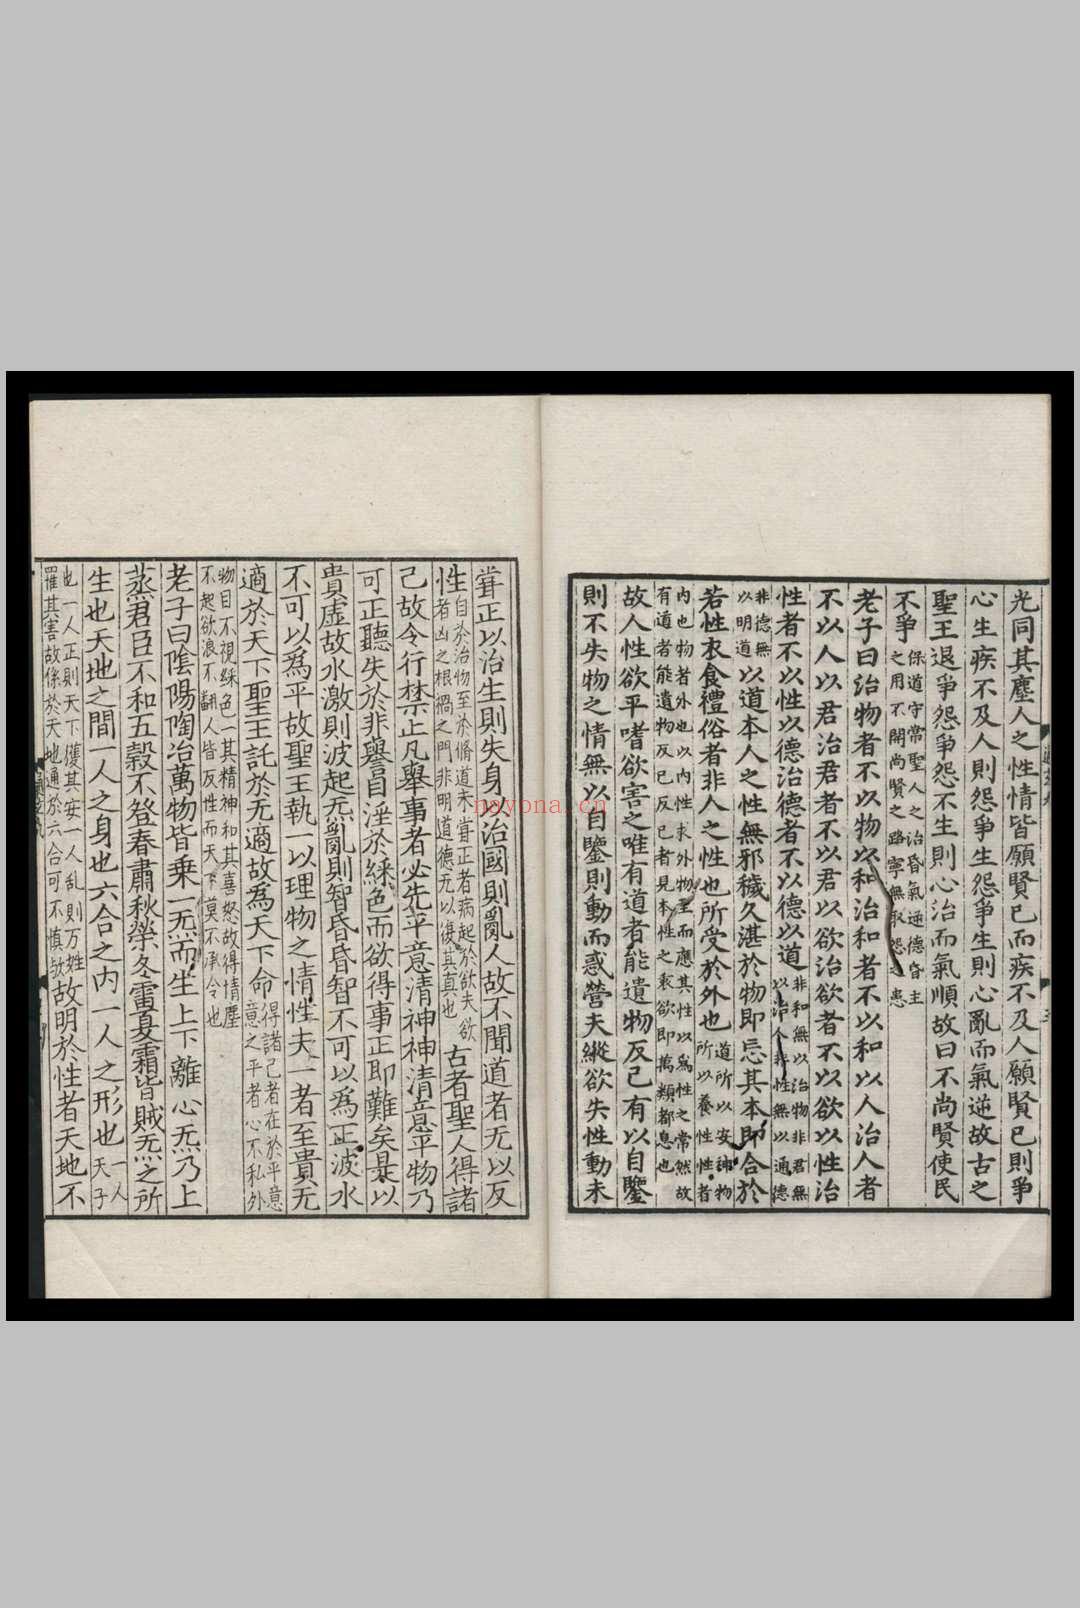 光同其塵人之性情皆願賢己而疾不及人願賢己則爭
心生疾不及人則怨爭生怨爭生則心亂而氣逆故古之
聖王退爭怨爭怨不生則心治而氣順故曰不尚賢使民
不爭保道守常聖人之治昏氣逆德昏主
之用不開尚賢之路寧無取怨之患
老子曰治物者不以物以和治和者不以和以人治人者
不以人以君治君者不以君以欲治欲者不以欲以性治
性者不以性以德治德者不以德以道非和無以治物非君無
以治人非性無以通德
非德無
以明道以道本人之性無邪穢久湛於物即忘其本即合於
若性衣食禮俗者非人之性也所受於外也道所以安神物
所以養性性者
内也物者外也以内性求外物至而應其性以為性之常然故
有道者能遺物反己反己者見本性之衷欲即萬類都息也
故人性欲平嗜欲害之唯有道者能遺物反己有以自鑒
則不失物之情無以自鑒則動而惑營夫縱欲失性動未
甞正以治生則失身以治國則亂人故不聞道者无以反
性自於治物至於脩道未甞正者病起於欲夫欲
者凶之根禍之門非明道德无以復其真也古者聖人得諸
己故令行禁止凡舉事者必先平意清神神清意平物乃
可正聽失於非譽目淫於綵色而欲得事正即難矣是以
貴虛故水激則波起炁亂則智昏昏智不可以為正波水
不可以為平故聖王執一以理物之情性夫一者至貴无
適於天下聖王託於无適故為天下命得諸己者在於平意
意之平者心不私外
物目不視綵色一其精神和其喜怒故得情塵
不起欲浪不翻人皆反性而天下莫不承令也
老子曰陰陽陶冶萬物皆乘一炁而生上下離心炁乃上
蒸君臣不和五穀不登春肅秋榮冬雷夏霜皆賊炁之所
生也天地之間一人之身也六合之内一人之形也一人
天子
也一人正則天下獲其安一人亂則万姓
罹其害故係於天地通於六合可不慎歟故明於性者天地不
nayona.cn